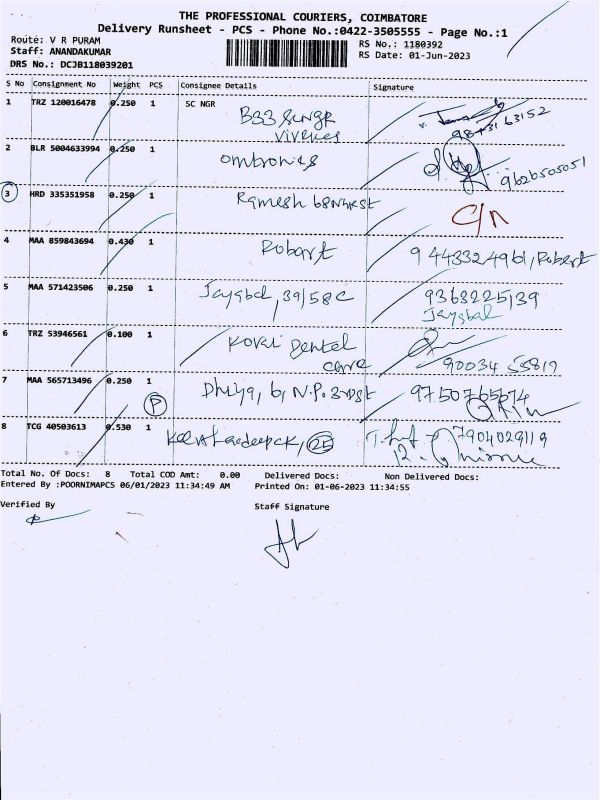 THE PROFESSIONAL COURIERS, COIMBATORE
Delivery Runsheet - PCS - Phone No.:0422-3505555 - Page No.:1
Route: V R PURAM
RS No.: 1180392
Staff: ANANDAKUMAR
RS Date: 01-Jun-2023
DRS No.: DCJB118039201
S No Consignment No Weight PCS Consignee Details Signature
1 TRZ 120016478 0.250 1 SC NGR
B33 SCNGR
Vivekes
2 BLR 5004633994 0.250 1 omtronics
9626505051
3 HRD 335351958 0.250 1 Ramesh C/n
4 MAA 859843694 0.430 1 Robart 9 443324961, Robert
5 MAA 571423506 0.250 1 Jaygbal, 39/58C 9363225139
Jaygbal
6 TRZ 53946561 0.100 1 Kovai Dental
care 90034 55819
7 MAA 565713496 0.250 1 Dhiya, 6, N.P. 3rd st
P
8 TCG 40503613 0.530 1 25 7904029119
Total No. Of Docs: 8 Total COD Amt: 0.00 Delivered Docs: Non Delivered Docs:
Entered By :POORNIMAPCS 06/01/2023 11:34:49 AM Printed On: 01-06-2023 11:34:55
Verified By Staff Signature